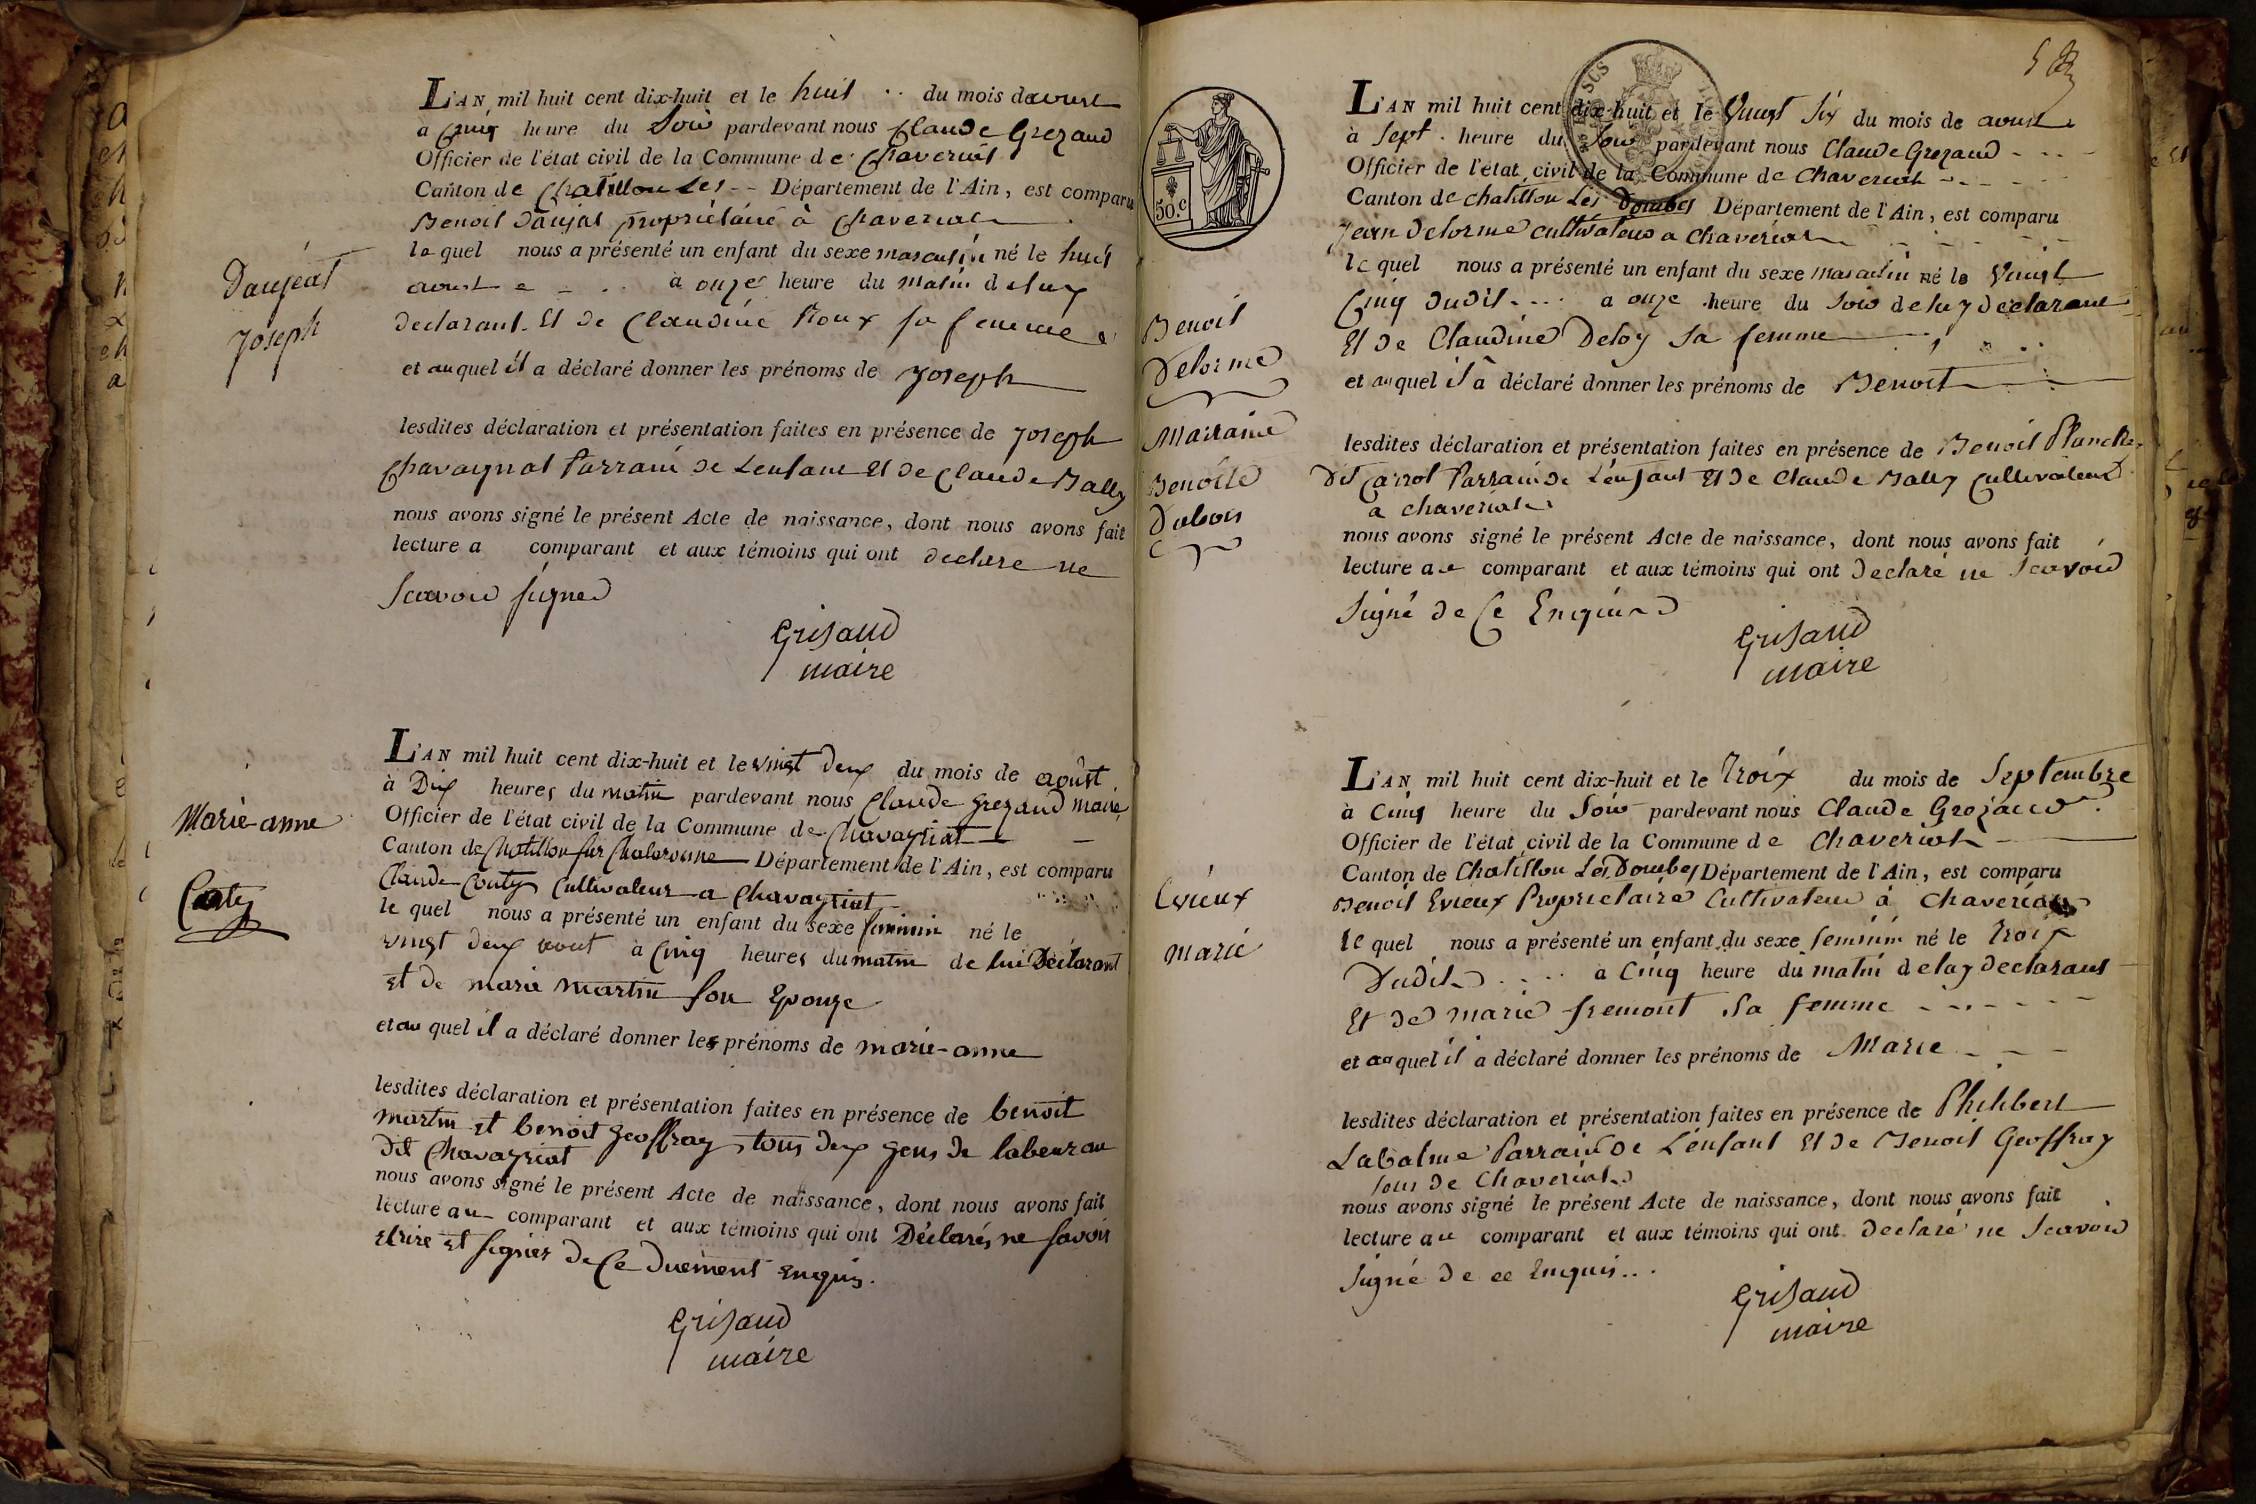 Daujat
Joseph
L'AN mil huit cent dix-huit et le huit du mois de aoust
a Cinq heure du Soir pardevant nous Claude Grezaud
Officier de l'état civil de la Commune de Chaveriat
Canton de Chatillon Les Département de l'Ain, est comparu
Benoit Daujat propriétaire à Chaveriat
le quel nous a présenté un enfant du sexe masculin né le huit
aoust a onze heure du matin de luy
declarant. Et de Claudine Roux sa femme
et auquel il a déclaré donner les prénoms de Joseph
lesdites déclaration et présentation faites en présence de Joseph
Chavagnat Parrain de Lenfant Et de Claude Bally
nous avons signé le présent Acte de naissance, dont nous avons fait
lecture a comparant et aux témoins qui ont declare ne
Scavoir signer
Grisaud
maire
Marie-anne
Couty
L'AN mil huit cent dix-huit et le vingt deux du mois de août
à Dix heures du matin pardevant nous Claude Grezaud maire
Officier de l'état civil de la Commune de Chavayriat
Canton de Chatillon sur Chalaronne Département de l'Ain, est comparu
Claude Couty Cultivateur a Chavayriat
le quel nous a présenté un enfant du sexe feminin né le
vingt deux aout à Cinq heures du matin de lui Déclarant
Et de marie martin son Epouze
et au quel il a déclaré donner les prénoms de marie-anne
lesdites déclaration et présentation faites en présence de benoit
martin et benoit Geoffray tous deux gens de labeur au
dit Chavayriat
nous avons signé le présent Acte de naissance, dont nous avons fait
lecture au comparant et aux témoins qui ont Déclarés ne savoir
Ecrire et signer de Ce Duement Enquis.
Grisaud
maire
50.c
Benoit
Delorme
Marraine
Benoite
Dubois
L'AN mil huit cent dix-huit et le Vingt Six du mois de aoust
à Sept heure du Soir pardevant nous Claude Grezaud
Officier de l'état civil de la Commune de Chaveriat
Canton de chatillon Les Dombes Département de l'Ain, est comparu
Jean Delorme cultivateur a Chaveriat
le quel nous a présenté un enfant du sexe masculin né le Vingt
Cinq dudit a onze heure du Soir de luy declarant
Et de Claudine Deloy sa femme
et auquel il à déclaré donner les prénoms de Benoit
lesdites déclaration et présentation faites en présence de Benoit Planche
Dit Carrot Parrain de Lenfant Et de Claude Bally Cultivateur
a chaveriat
nous avons signé le présent Acte de naissance, dont nous avons fait
lecture au comparant et aux témoins qui ont declaré ne Scavoir
Signé de Ce Enquis
Grisaud
maire
Evieux
marie
L'AN mil huit cent dix-huit et le Troix du mois de Septembre
à Cinq heure du Soir pardevant nous Claude Grezaud
Officier de l'état civil de la Commune de Chaveriat
Canton de Chatillon Les Dombes Département de l'Ain, est comparu
Benoit Evieux Proprietaire Cultivateur à Chaveriat
le quel nous a présenté un enfant du sexe feminin né le Troix
Dudit a Cinq heure du matin de luy declarant
Et de marie fremont sa femme
et au quel il a déclaré donner les prénoms de Marie
lesdites déclaration et présentation faites en présence de Philibert
Labalme Parrain de L'enfant Et de Benoit Geoffray
tous de Chaveriat
nous avons signé le présent Acte de naissance, dont nous avons fait
lecture au comparant et aux témoins qui ont declaré ne Scavoir
Signé de ce Enquis
Grisaud
maire